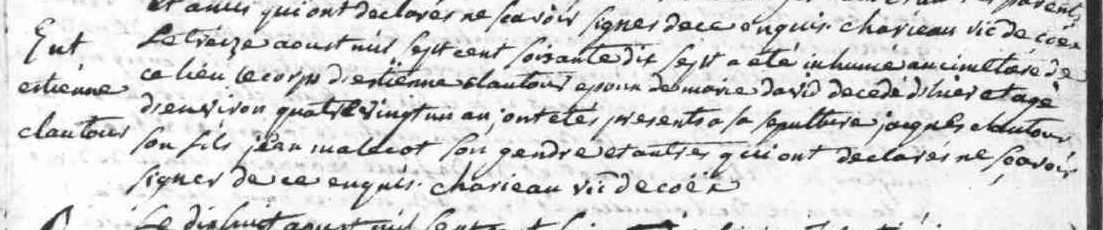 et amis qui ont declarés ne scavoir signer de ce enquis. charieau vic de coëx
Ent Le treize aoust mil sept cent soixante dix sept a été inhumé au cimetiere de
estienne ce lieu le corps d'estienne clautour epoux de marie david decedé d'hier et agé
d'environ quatre vingt un an, ont étés presents a sa sepulture jacques clautour
clautour son fils jean malecot son gendre et autres qui ont declarés ne scavoir
signer de ce enquis. charieau vic de coëx
Le dix huit aoust mil sept cent